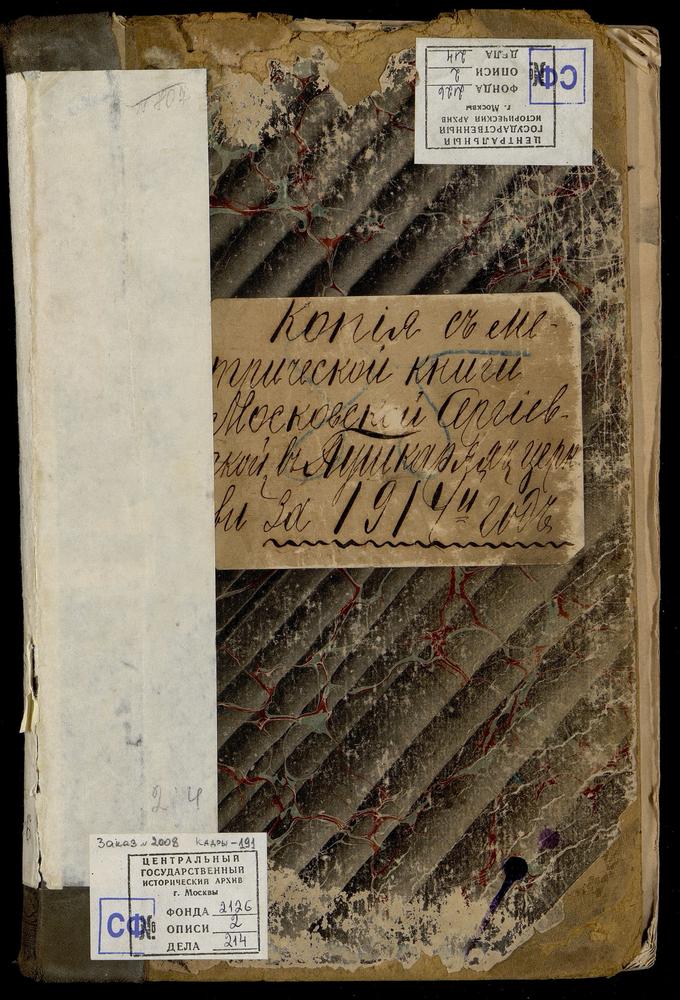 ЦЕНТРАЛЬНЫЙ
ГОСУДАРСТВЕННЫЙ
ИСТОРИЧЕСКИЙ АРХИВ
г. Москвы
ФОНДА 2126
ОПИСИ 2
ДЕЛА 214
СФ №
Копія съ ме-
трической книги
Московской Сергіев-
ской въ Пушкаряхъ церк-
ви за 1914й годъ
24
Заказ № 2008 Кадры-191
ЦЕНТРАЛЬНЫЙ
ГОСУДАРСТВЕННЫЙ
ИСТОРИЧЕСКИЙ АРХИВ
г. Москвы
ФОНДА 2126
ОПИСИ 2
ДЕЛА 214
СФ №